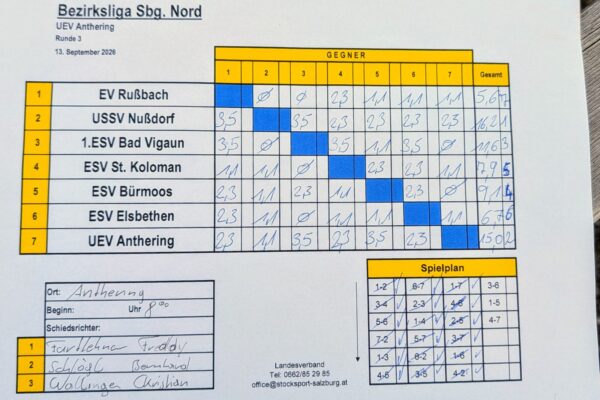 Bezirksliga Sbg. Nord
UEV Anthering
Runde 3
13. September 2026
GEGNER
1 2 3 4 5 6 7 Gesamt
1 EV Rußbach ∅ ∅ 2,3 1,1 1,1 1,1 5,6 7
2 USSV Nußdorf 3,5 3,5 2,3 2,3 2,3 2,3 16,2 1
3 1.ESV Bad Vigaun 3,5 ∅ 3,5 1,1 3,5 ∅ 11,6 3
4 ESV St. Koloman 1,1 1,1 ∅ 2,3 2,3 1,1 7,9 5
5 ESV Bürmoos 2,3 1,1 2,3 1,1 2,3 ∅ 9,1 4
6 ESV Elsbethen 2,3 1,1 ∅ 1,1 1,1 1,1 6,7 6
7 UEV Anthering 2,3 1,1 3,5 2,3 3,5 2,3 15,0 2
Ort: Anthering
Beginn: Uhr 8⁰⁰
Schiedsrichter:
1 Freddy
2 Schlögl Bernhard
3 Wallinger Christian
Landesverband
Tel: 0662/85 29 85
office@stocksport-salzburg.at
Spielplan
1-2 6-7 1-7 3-6
3-4 2-3 4-6 1-5
5-6 1-4 2-5 4-7
7-2 5-7 3-7
1-3 6-2 1-6
4-5 3-5 4-2